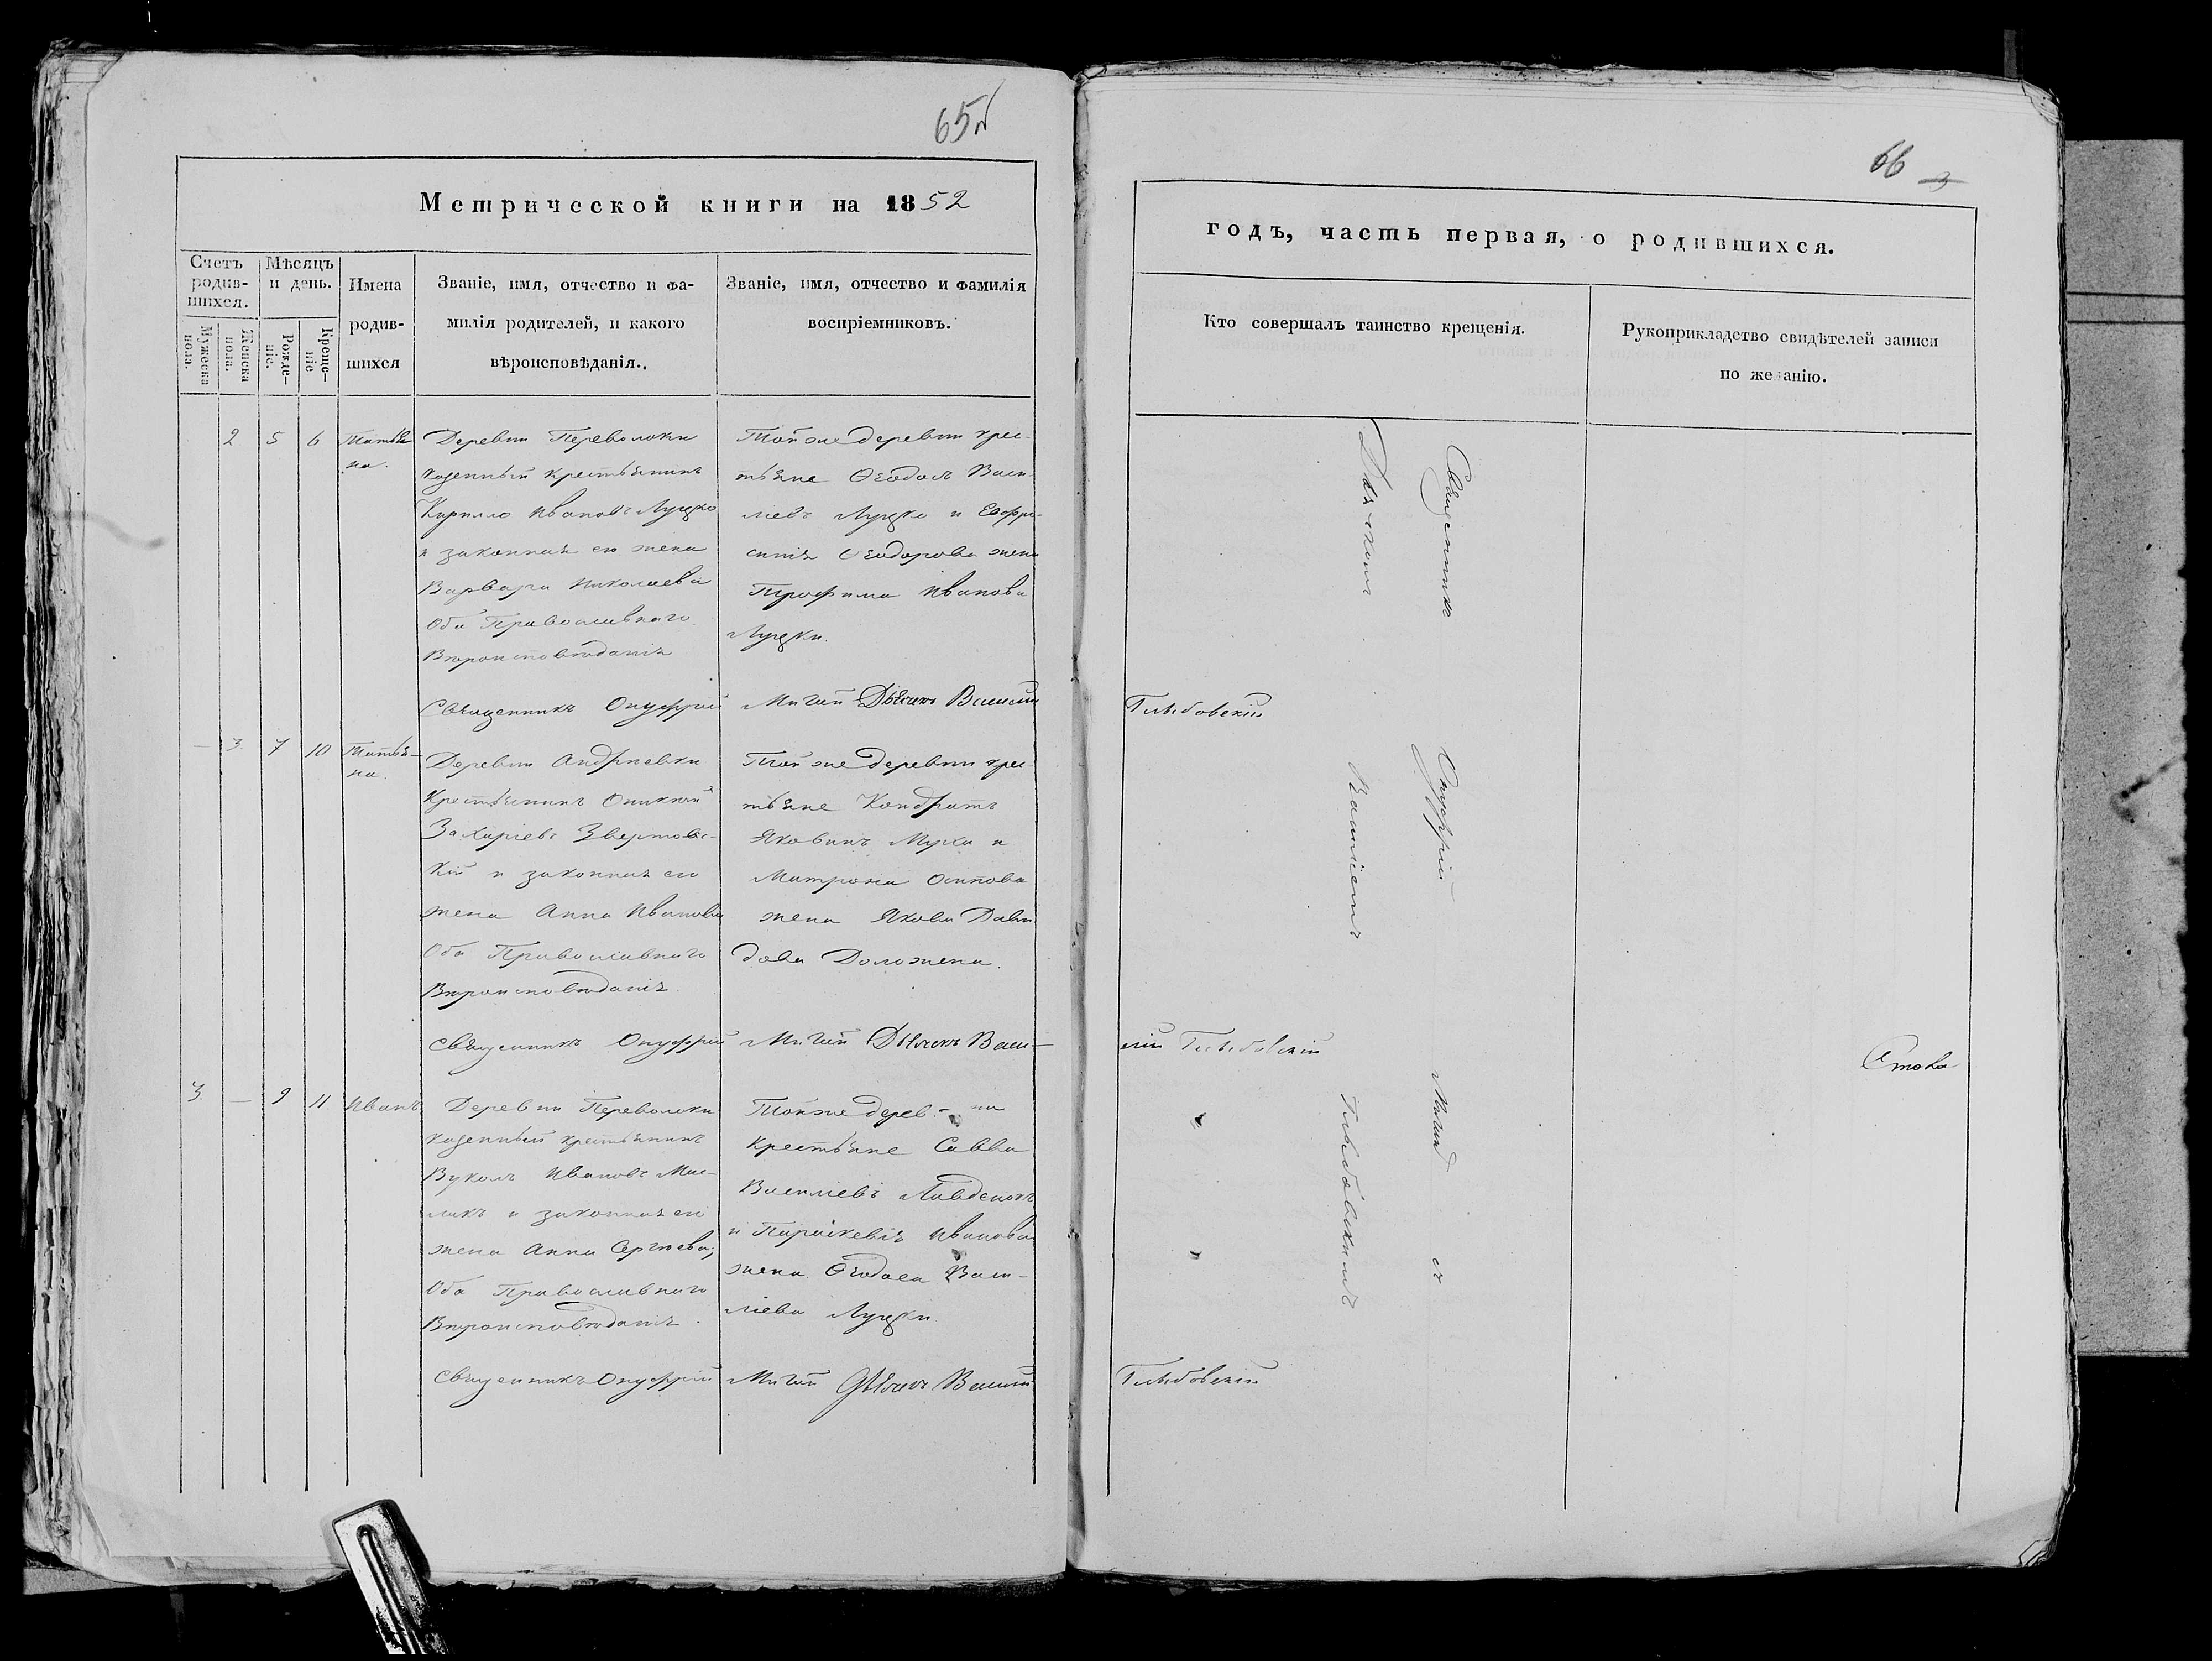 65
Метрической книги на 1852
Счетъ родив-шихся.
Мужеска пола.
Женска пола.
Мѣсяцъ и день.
Рожде-ніе.
Креще-ніе
Имена
родив-
шихся
Званіе, имя, отчество и фа-
милія родителей, и какого
вѣроисповѣданія.
Званіе, имя, отчество и фамилія
воспріемниковъ.
2 5 6 Татья
на.
Деревни Переволоки
казенный крестьянинъ
Кирилло Ивановъ Луцко
и законная его жена
Варвара Николаева
Оба Православнаго
Вѣроисповѣданія
Тойже деревни крес-
тьяне Ѳеодосъ Васи-
лiевъ Луцко и Евфро-
синія Ѳеодорова жена
Трофима Иванова
Луцки.
Священникъ Онуфрий Мигай Дьячекъ Василий
Глыбовскій
— 3 7 10 Татья-
на.
Деревни Андриевки
Крестьянинъ
Захаріевъ
кій и законная его
жена Анна Иванова
Оба Православнаго
Вѣроисповѣданія
Той же деревни крес
тьяне Кондратъ
Яковинъ и
Матрона Осипова
жена Якова Дави
дова
Священникъ Онуфрий Мигай Дьячекъ Васи-
лий Глыбовскій
3 — 9 11 Иванъ
Деревни Переволоки
казенный крестьянинъ
Вуколъ Ивановъ Мас-
лакъ и законная его
жена Анна Сергѣева,
Оба Православнаго
Вѣроисповѣданія.
Тойже дерев-ни
крестьяне Савва
Василіевъ
и Параскевія Иванова
жена Ѳеодоса Васи-
ліева Луцки
Священникъ Онуфрий Мигай Дьячекъ Василий
Глыбовскій
66
годъ, часть первая, о родившихся.
Кто совершалъ таинство крещенія.
Рукоприкладство свидѣтелей записи
по желанію.
Священникъ Онуфрій съ
Дьячкомъ Василіемъ Глыбовскимъ